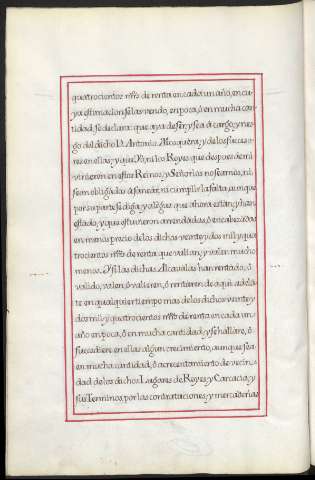 quatrocientos mrs̃ de renta en cada un año, en cu-
ya estimacion se las vendo, en poca, ò en mucha can-
tidad, se declara: que aya de ser, y sea à cargo, y ries-
go del dicho D. Antonio Alcoquera, y de los succeso-
res en ellas; y que Yo, ni los Reyes que despues de mi
vinieren en estos Reinos, y Señorios no seamos, ni
sean obligados à sanear, ni cumplir la falta, aunque
por su parte se diga, y alegue que ahora estàn, y han
estado, y que estuvieron arrendadas, ò encabezadas
en menos precio de los dichos veinte y dos mil y qua-
trocientos mrs̃ de renta, que valían, y valen mucho
menos. Y si las dichas Alcavalas han rentado, ò
valido, valen, ò valieren, ò rentaren de aqui adelan-
te en qualquier tiempo mas de los dichos veinte y
dos mil y quatrocientos mrs̃ de renta en cada un
año en poca, ò en mucha cantidad, y se hallare, ò
succediere en ellas algun crecimiento, aunque sea
en mucha cantidad, ò acrecentamiento de vecin-
dad de los dichos Lugares de Reyes, y Carcacia, y
sus Terminos, por las contrataciones, y mercaderias